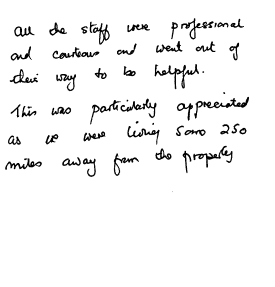 All the staff were professional
and courteous and went out of
their way to be helpful.
This was particularly appreciated
as we were living some 250
miles away from the property